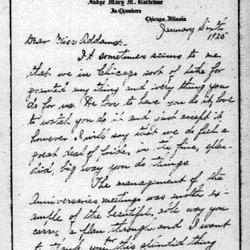 Judge Mary M. Bartelme
In Chambers
Chicago, Illinois
January
1925
Dear Miss Addams:
It sometimes seems to me
that we in Chicago sort of take for
granted any thing and every thing you
do for us. We love to have you do it, love
to watch you do it and just accept it,
however I will say that we do feel a
great deal of pride, in the fine, splen-
did, big way you do things.
The management of the
Anniversaries meetings was another ex-
ample of the beautiful, able way you
carry a plan through and I want
to thank you for this splendid thing